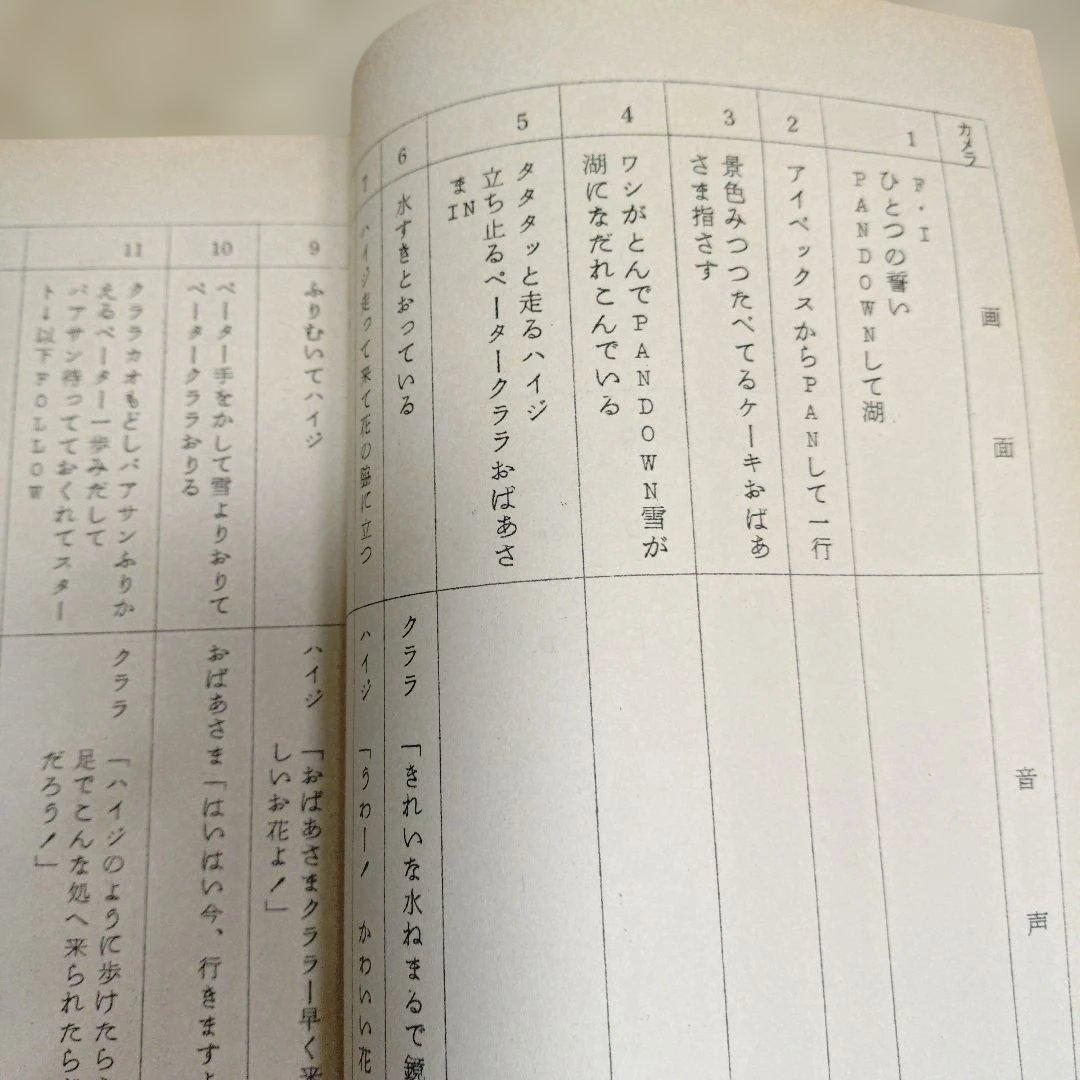 カメラ
画面
音声
1
F・I
ひとつの誓い
PANDOWNして湖
2
アイベックスからPANして一行
3
景色みつつたべてるケーキおばあ
さま指さす
4
ワシがとんでPANDOWN雪が
湖になだれこんでいる
5
タタタッと走るハイジ
立ち止るペータークララおばあさ
まIN
6
水すきとおっている
クララ
「きれいな水ねまるで鏡
7
ハイジ走って来て花の脇に立つ
ハイジ
「うわー! かわいい花
9
ふりむいてハイジ
ハイジ
「おばあさまクララー早く来
しいお花よ!」
10
ペーター手をかして雪よりおりて
ペータークララおりる
おばあさま「はいはい今、行きますよ
11
クララカオもどしバアサンふりか
えるペーター一歩みだして
バアサン待っててておくれてスター
ト↓以下FOLLOW
クララ
「ハイジのように歩けたら
足でこんな処へ来られたら
だろう!」